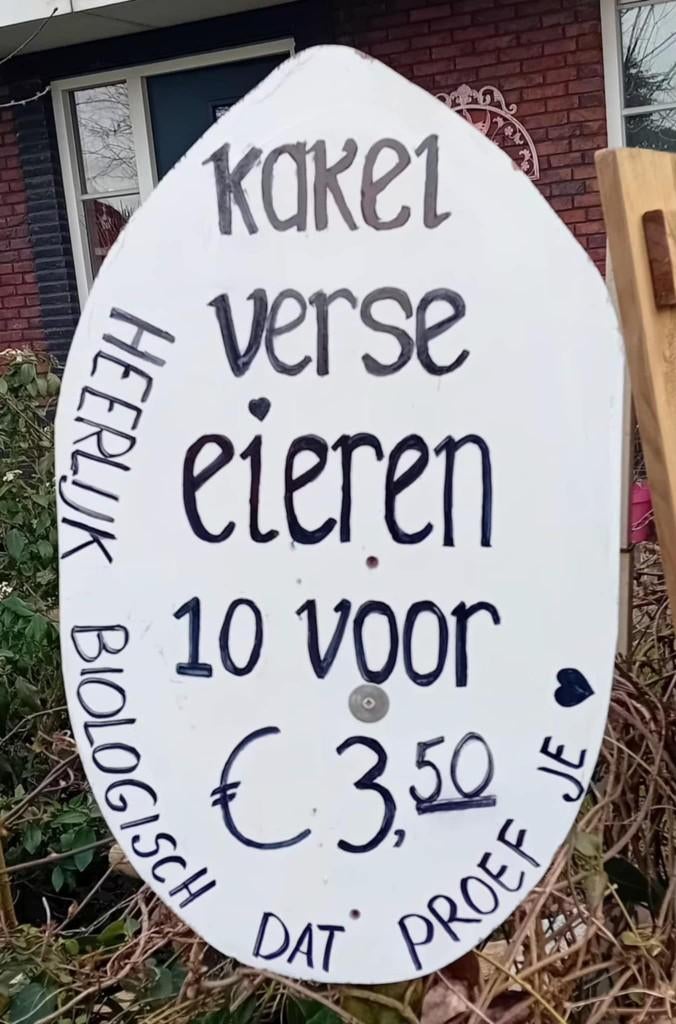 Kakel
verse
eieren
10 voor
€ 3,50
HEERLIJK BIOLOGISCH DAT PROEF JE